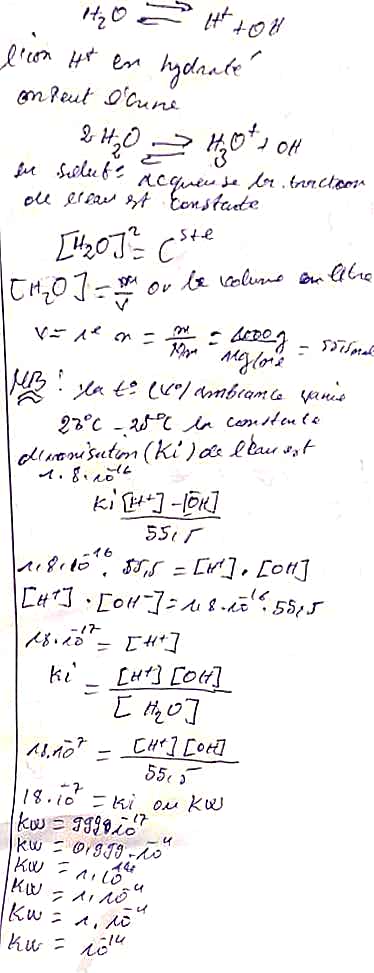 H₂O ⇌ H⁺ + OH
l'ion H⁺ en hydraté
2 H₂O ⇌ H₃O⁺ + OH
de l'eau est constante
[H₂O]² = Cˢᵗᵉ
[H₂O] = n/V or le volume en litre
V = 1ᵉ n = m/Mm = 1000g/18g/mole = 55,5mol
NB : la t° (V°) ambiance varie
23°C - 25°C la constante
d'ionisation (Ki) de l'eau est
1.8.10⁻¹⁶
Ki [H⁺] - [OH]/55,5
1,8.10⁻¹⁶. 55,5 = [H⁺] . [OH]
[H⁺] . [OH⁻] = 1,8.10⁻¹⁶.55,5
18.10⁻¹⁷ = [H⁺]
Ki = [H⁺] [OH]/[H₂O]
18.10⁻⁷ = [H⁺] [OH]/55,5
18.10⁻⁷ = Ki ou Kw
Kw = 999.10⁻¹⁷
Kw = 0,999.10⁻⁴
Kw = 1.10⁻¹⁴
Kw = 1.10⁻⁴
Kw = 1.10⁻⁴
Kw = 10⁻¹⁴